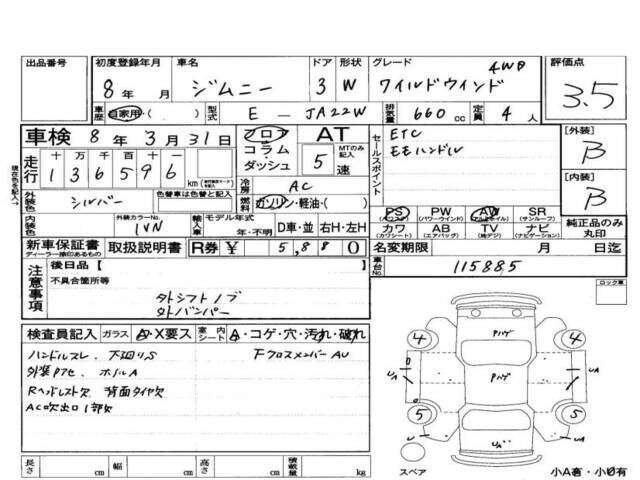 出品番号 初度登録年月 車名 ドア 形状 グレード 4WD 評価点
8年 月 ジムニー 3 W ワイルドウインド 3.5
車歴 自家用・( ) 型式 E - JA22W 排気量 660 cc 定員 4 人
車検 8年 3月 31日 フロア AT セールスポイント ETC 【外装】
走行 十 万 千 百 十 一 コラム・ダッシュ 5 速 MTのみ記入 モモハンドル B
1 3 6 5 9 6 km
冷房 AC 【内装】
外装色 シルバー 色替車は色替と記入 燃料 ガソリン・軽油・( ) B
内装色 外装カラーNo. 1VN 輸入車 モデル年式 年・不明 D車・並 右H・左H
PS (パワステ) PW (パワーウインド) AW (アルミホイル) SR (サンルーフ)
カワ (カワシート) AB (エアバッグ) TV (純デジ) ナビ (ナビゲーション) 純正品のみ丸印
新車保証書 ディーラー捺印あるもの 取扱説明書 R券 ¥ 5,880 名変期限 月 日迄
車台No. 115885
注意事項 後日品【
不具合箇所等
タトシフトノブ
タトバンパー
ロック車
検査員記入 ガラス A・X要ス 室内シート A・コゲ・穴・汚れ・破れ
ハンドルスレ 下廻りS FクロスメンバーAU
外装Pアセ ホイルA
Rヘッドレスト欠 背面タイヤ欠
AC吹出口1部欠
4 Pハゲ 4
UA Pハゲ UA
5 UA 5
長さ cm 幅 cm 高さ cm 積載量 kg
スペア 小A有・小U有
現在色を記入→